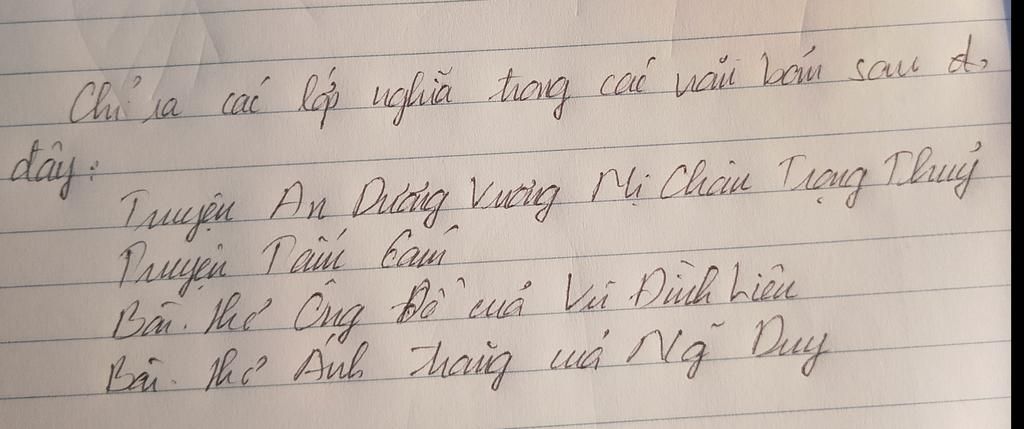 Chỉ ra các lớp nghĩa trong các văn bản sau đ,
đây:
Truyện An Dương Vương Mị Châu Trọng Thuỷ
Truyện Tấm Cám
Bài thơ Ông Đồ của Vũ Đình Liên
Bài thơ Ánh trăng của Ng~ Duy